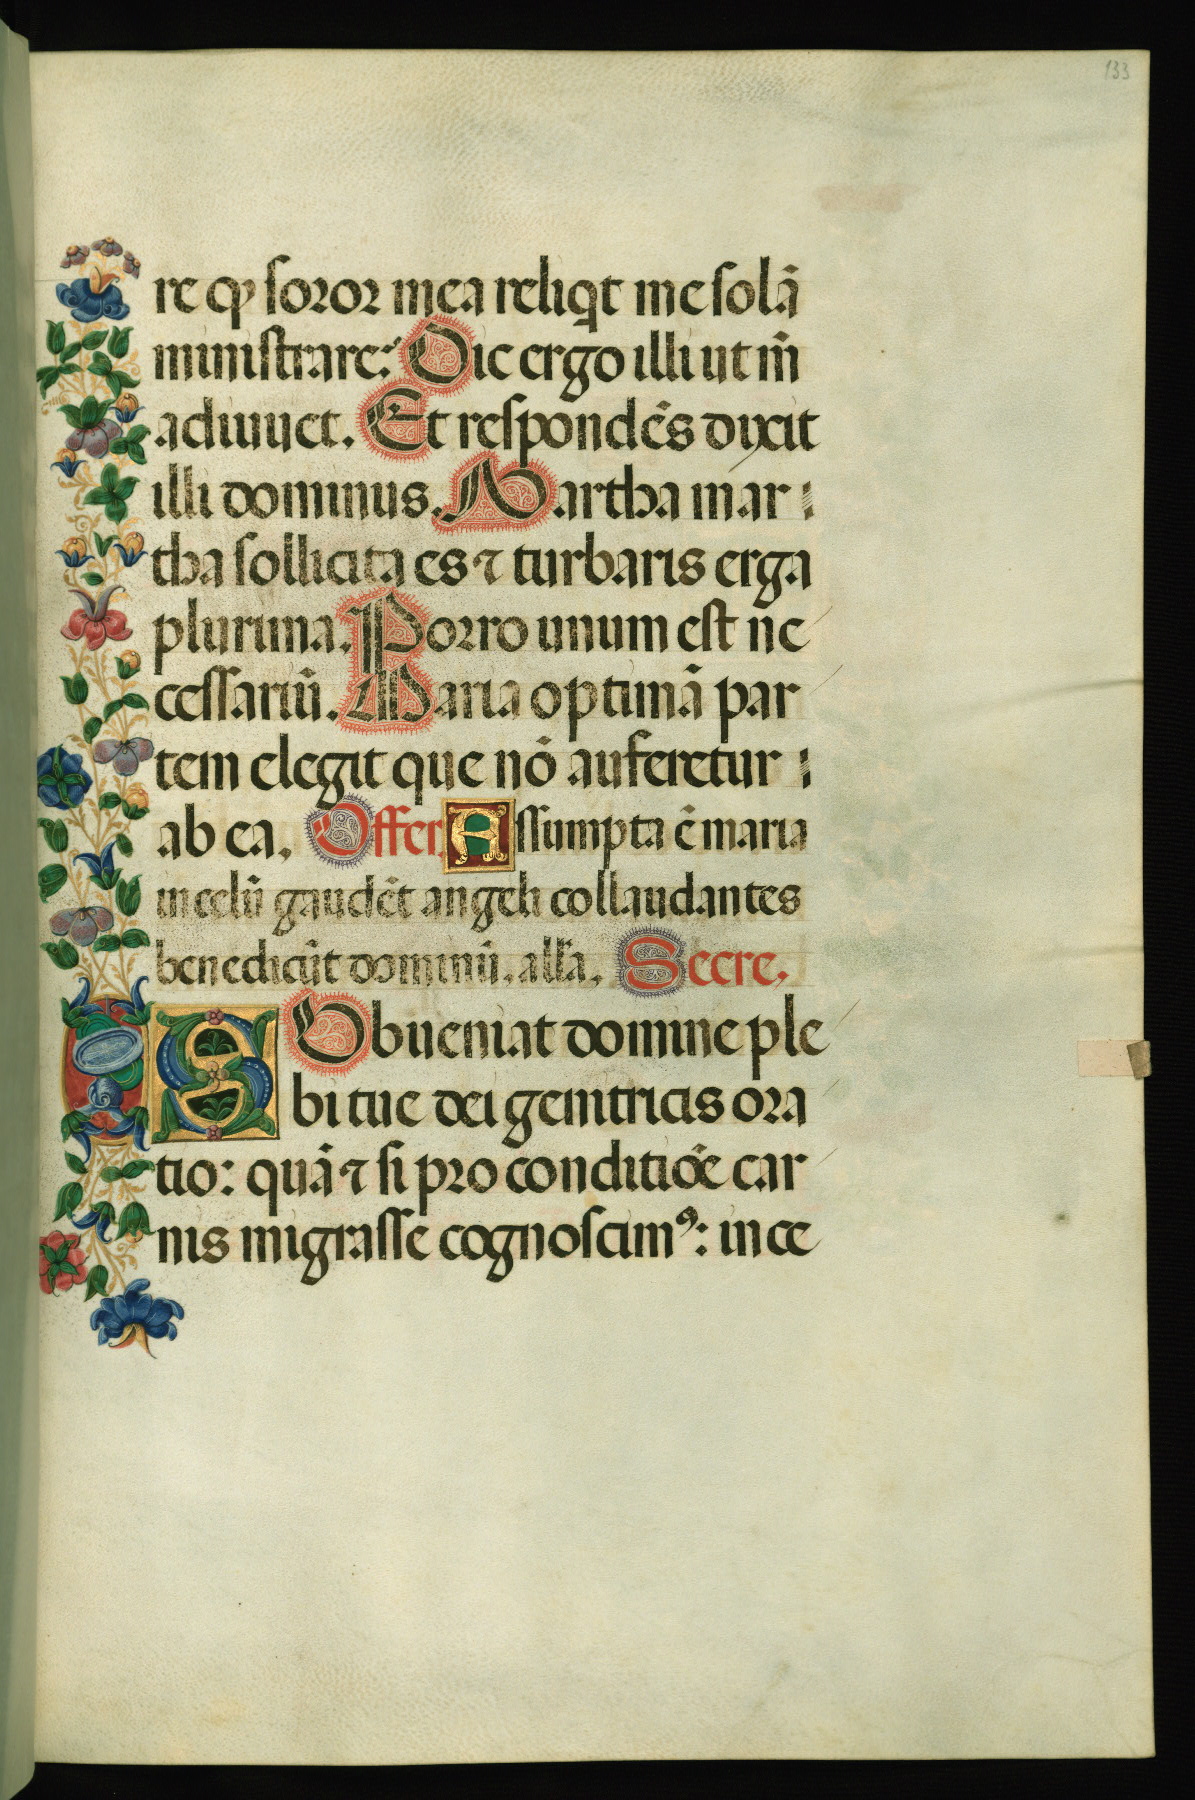 133
re qꝫ soror mea reliqͥt me solā
ministrare: Dic ergo illi ut m̄
adiuuet. Et respondēs dixit
illi dominus. Martha mar
tha sollicita es ⁊ turbaris erga
plurima. Porro unum est ne
cessariū. Maria optimā par
tem elegit que nō auferetur
ab ea. Offer. Assumpta ē maria
in celū gaudēt angeli collaudantes
benedicūt dominū. all̄a. Secre.
SUbueniat domine ple
bi tue dei genitricis ora
tio: quā ⁊ si pro conditiōe car
nis migrasse cognoscimꝰ: in ce